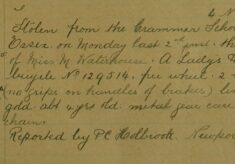 4 N
Stolen from the Grammer Scho
Essex. on Monday last 2nd inst. th
of Miss M. Waterhouse. A Ladys
bicycle No 129514. free wheel. 2
(no grips on handles of brakes)
gdd abt 4 yrs old. metal gear case
chain.
Reported by PC Holbrook Newpor